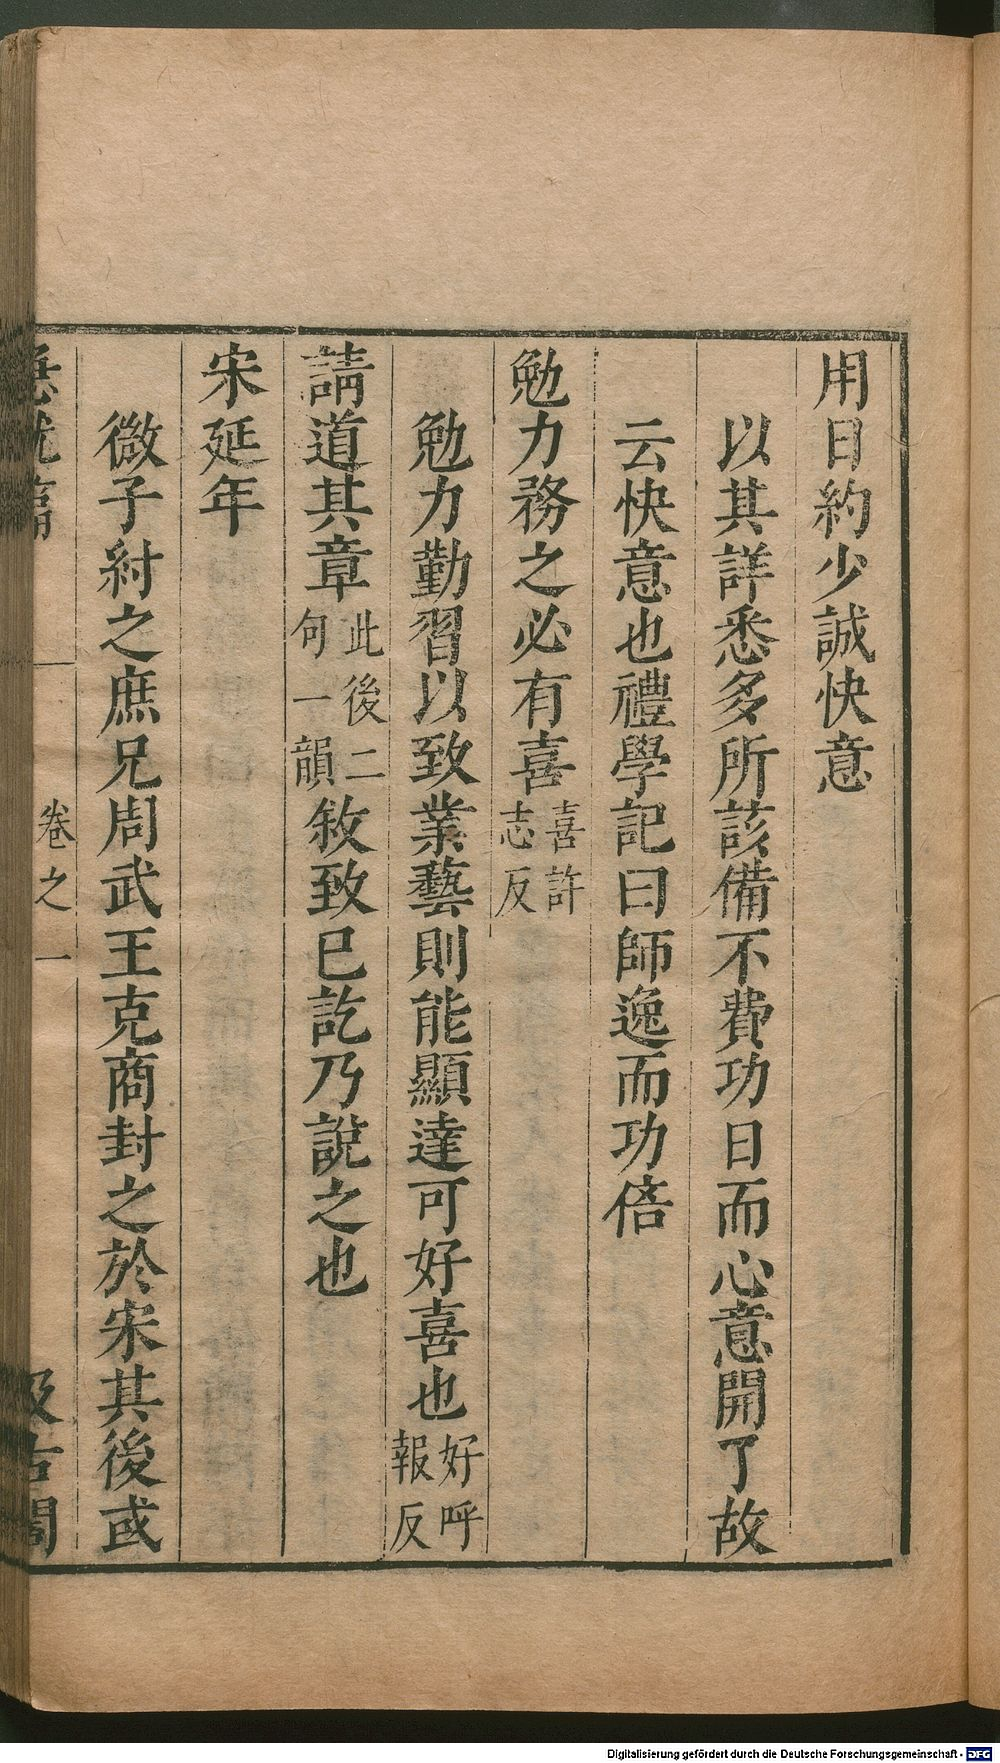 用日約少誠快意
以其詳悉多所該備不費功日而心意開了故
云快意也禮學記曰師逸而功倍
勉力務之必有喜喜許志反
勉力勤習以致業藝則能顯達可好喜也好呼報反
請道其章此後二句一韻敘致已訖乃說之也
宋延年
微子紂之庶兄周武王克商封之於宋其後或
急就篇 卷之一 汲古閣
Digitalisierung gefördert durch die Deutsche Forschungsgemeinschaft - DFG